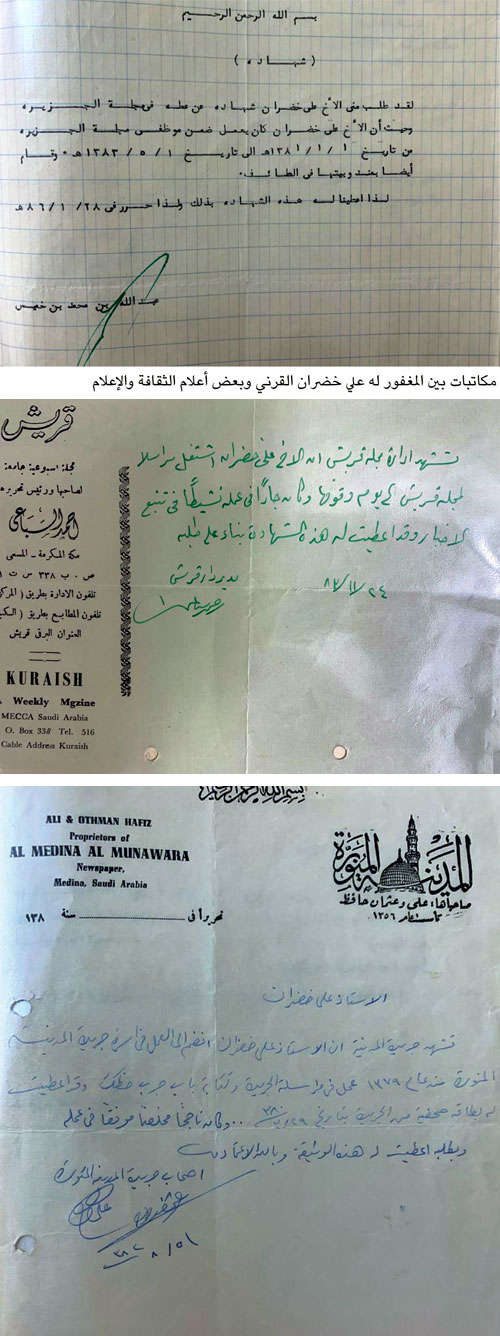 بسم الله الرحمن الرحيم
( شهاده )
لقد طلب منى الأخ على خضران شهاده عن عمله فى مجلة الجزيره
وحيث أن الأخ على خضران كان يعمل ضمن موظفى مجلة الجزيره
من تاريخ ١/١/١٣٨١هـ الى تاريخ ١/٥/١٣٨٣هـ وقام
أيضا بعند وبيتها فى الطائف.
لذا اعطينا له هذه الشهاده بذلك ولذا حرر فى ٢٨/١/٨٦هـ
عبد الله بن محمد بن خميس
مكاتبات بين المغفور له علي خضران القرني وبعض أعلام الثقافة والإعلام
قريش
مجلة اسبوعية جامعة
لصاحبها ورئيس تحريرها
أحمد السباعي
مكة المكرمة - المسعى
ص . ب ٣٣٨ ت
تلفون الادارة بطريق
تلفون المطابع بطريق
العنوان البرقى قريش
KURAISH
A Weekly Mgzine
MECCA Saudi Arabia
P. O. Box 338 Tel. 516
Cable Address Kuraish
تشهد ادارة مجلة قريش ان الاخ على خضران اشتغل مراسلا
لمجلة قريش الى يوم وقوفها وكان جادًا فى عمله نشيطًا فى تتبع
الاخبار وقد اعطيت له هذه الشهادة بناء على طلبه
مدير دار قريش
٢٤
بسم الله الرحمن الرحيم
ALI & OTHMAN HAFIZ
Proprietors of
AL MEDINA AL MUNAWARA
Newspaper,
Medina, Saudi Arabia
المدينة المنورة
صاحباها: على وعثمان حافظ
تأسست عام ١٣٥٦
تحريرا فى سنة ١٣٨
الاستاذ على خضران
تشهد جريدة المدينة ان الاستاذ على خضران انضم الى العمل فى اسرة جريدة المدينة
المنورة منذ عام ١٣٧٩ عمل فى مراسلة الجريدة وكتابة باب جرب حظك وقد اعطيت
له بطاقة صحفية من الجريدة بتاريخ وكان ناجحًا مخلصًا موفقًا فى عمله
وبطلبه اعطيت له هذه الوثيقة وبالله الاعتماد
اصحاب جريدة المدينة المنورة